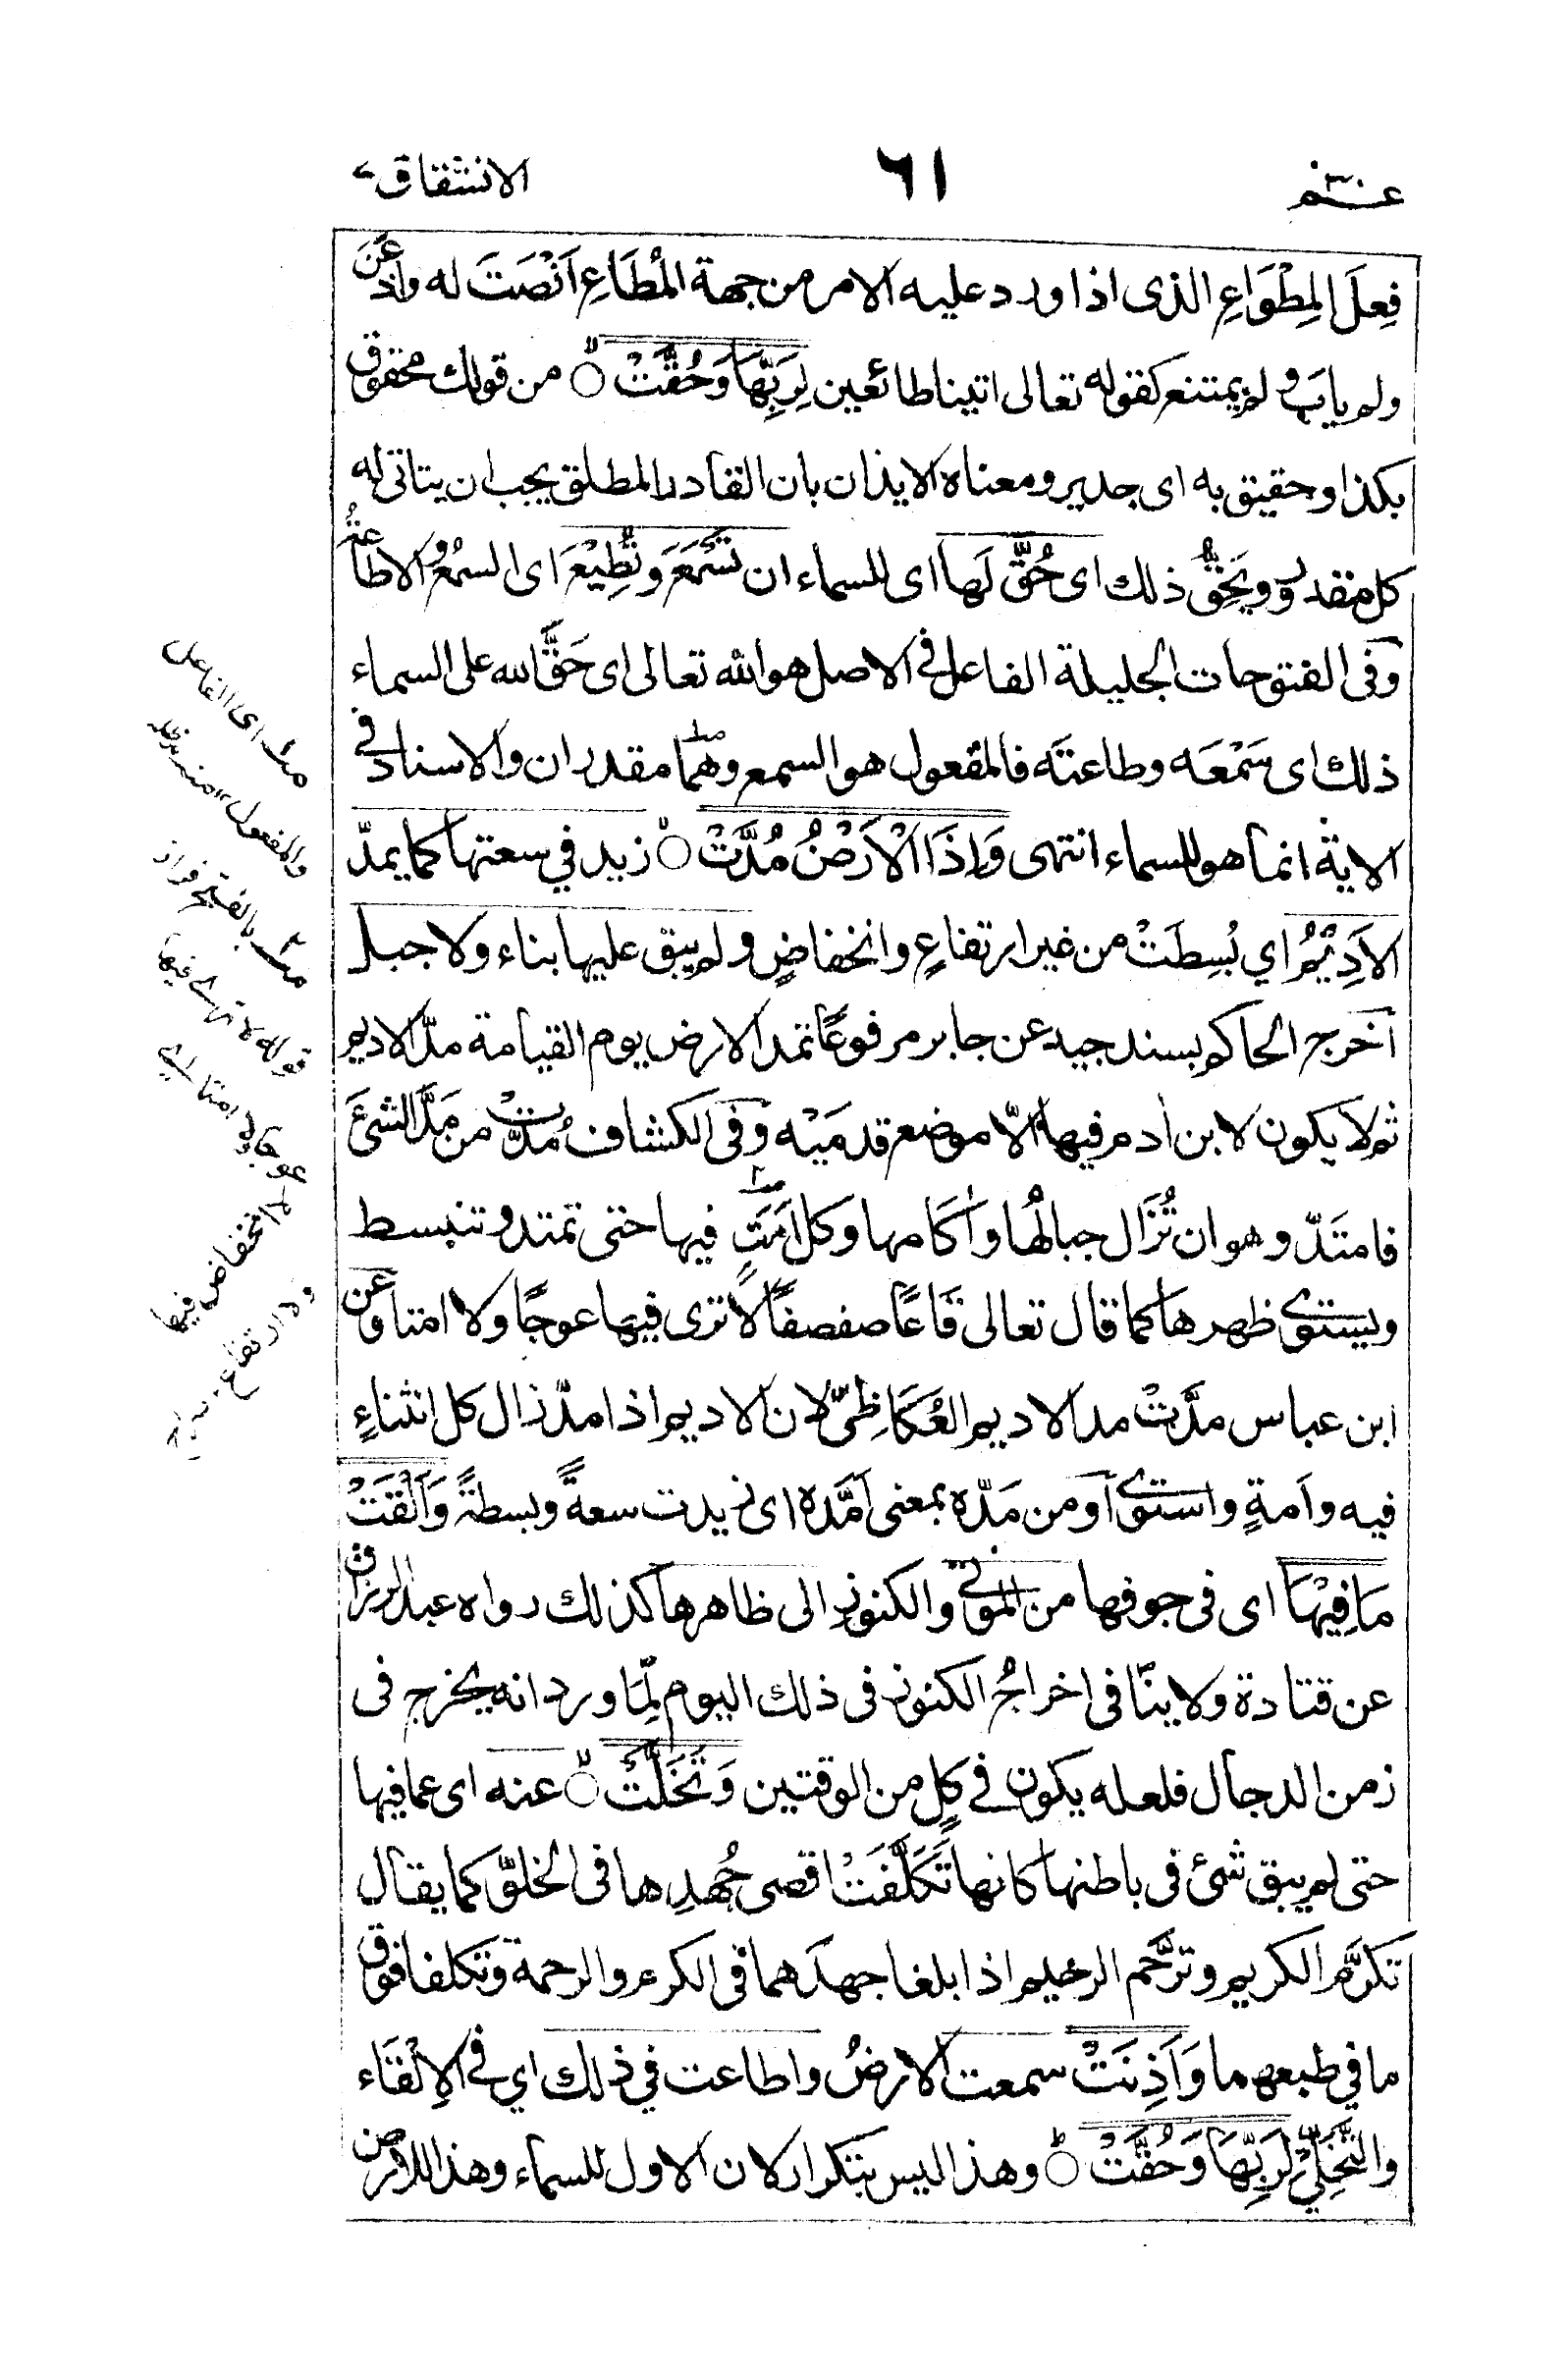 عم ٣٠
٦١
الانشقاق
فِعلَ المِطْوَاعِ الذى اذا ورد عليه الامر من جهة المُطَاعِ اَنْصَتَ له واَذعَنَ
ولم يابَ ولم يمتنع كقوله تعالى اتينا طائعين لِرَبِّهَا وَحُقَّتْ ۙ من قولك محقوق
بكذا وحقيق به اى جدير ومعناه الايذان بان القادر المطلق يجب ان يتاتى له
كل مقدور ويَحِقُّ ذلك اى حُقَّ لَها اى للسماء ان تَسْمَعَ وتُطِيْعَ اى السمعُ والاطاعةُ
وفى الفتوحات الجليلة الفاعل فى الاصل هو الله تعالى اى حَقَّ الله على السماء
ذلك اى سَمْعَه وطاعتَه فالمفعول هو السمع وهما مقدران والاسناد فى
الاية انما هو للسماء انتهى وَاِذَا الْاَرْضُ مُدَّتْ ۙ زيد في سعتها كما يمدّ
الاَدِيْمُ اي بُسِطَتْ من غير ارتفاعٍ وانخفاضٍ ولم يبق عليها بناء ولا جبل
اخرج الحاكم بسند جيد عن جابر مرفوعًا تمد الارض يوم القيامة مدّ الاديم
ثم لا يكون لابن أدم فيها الّا موضع قدمَيْه وفى الكشاف مُدّت من مَدَّ الشئَ
فامتَدّ وهو ان تُزَال جبالُها وأكامها وكل اَمَتٍ فيها حتى تمتد وتنبسط
ويستوى ظهرها كما قال تعالى قَاعًا صفصفًا لا ترى فيها عوجًا ولا امتا وعن
ابن عباس مدَّتْ مد الاديم العُكَاظِىّ لان الاديم اذا مدّ زال كل انثناءٍ
فيه واَمةٍ واستوى او من مَدّه بمعنى اَمَّده اى زيدت سعةً وبسطةً وَاَلْقَتْ
مَا فِيْهَا اى فى جوفها من الموتى والكنوز الى ظاهرها كذلك رواه عبد الرزاق
عن قتادة ولا ينافى اخراجُ الكنوز فى ذلك اليوم لِمَا ورد انه يخرج فى
زمن الدجال فلعله يكون فى كلٍ من الوقتين وَتَخَلَّتْ ۙ عنه اى عما فيها
حتى لم يبق شئ فى باطنها كانها تَكَلَّفَتْ اقصى جُهدِها فى الخلوّ كما يقال
تكرَّم الكريم وترحَّم الرحيم اذا بلغا جهدَهما فى الكرم والرحمة وتكلفا فوق
ما في طبعهما وَاَذِنَتْ سمعت الارضُ واطاعت في ذلك اي فى الاِلْقَاء
والتَّخَلِّيْ لِرَبِّهَا وَحُقَّتْ ۭ وهذا ليس بتكرار لان الاول للسماء وهذا للارض
اى الفاعل
والمفعول ١٢ منه
بالفتح
قوله لا ترى فيها
عوجا ولا امتا اى
لا انخفاض فيها
ولا ارتفاع